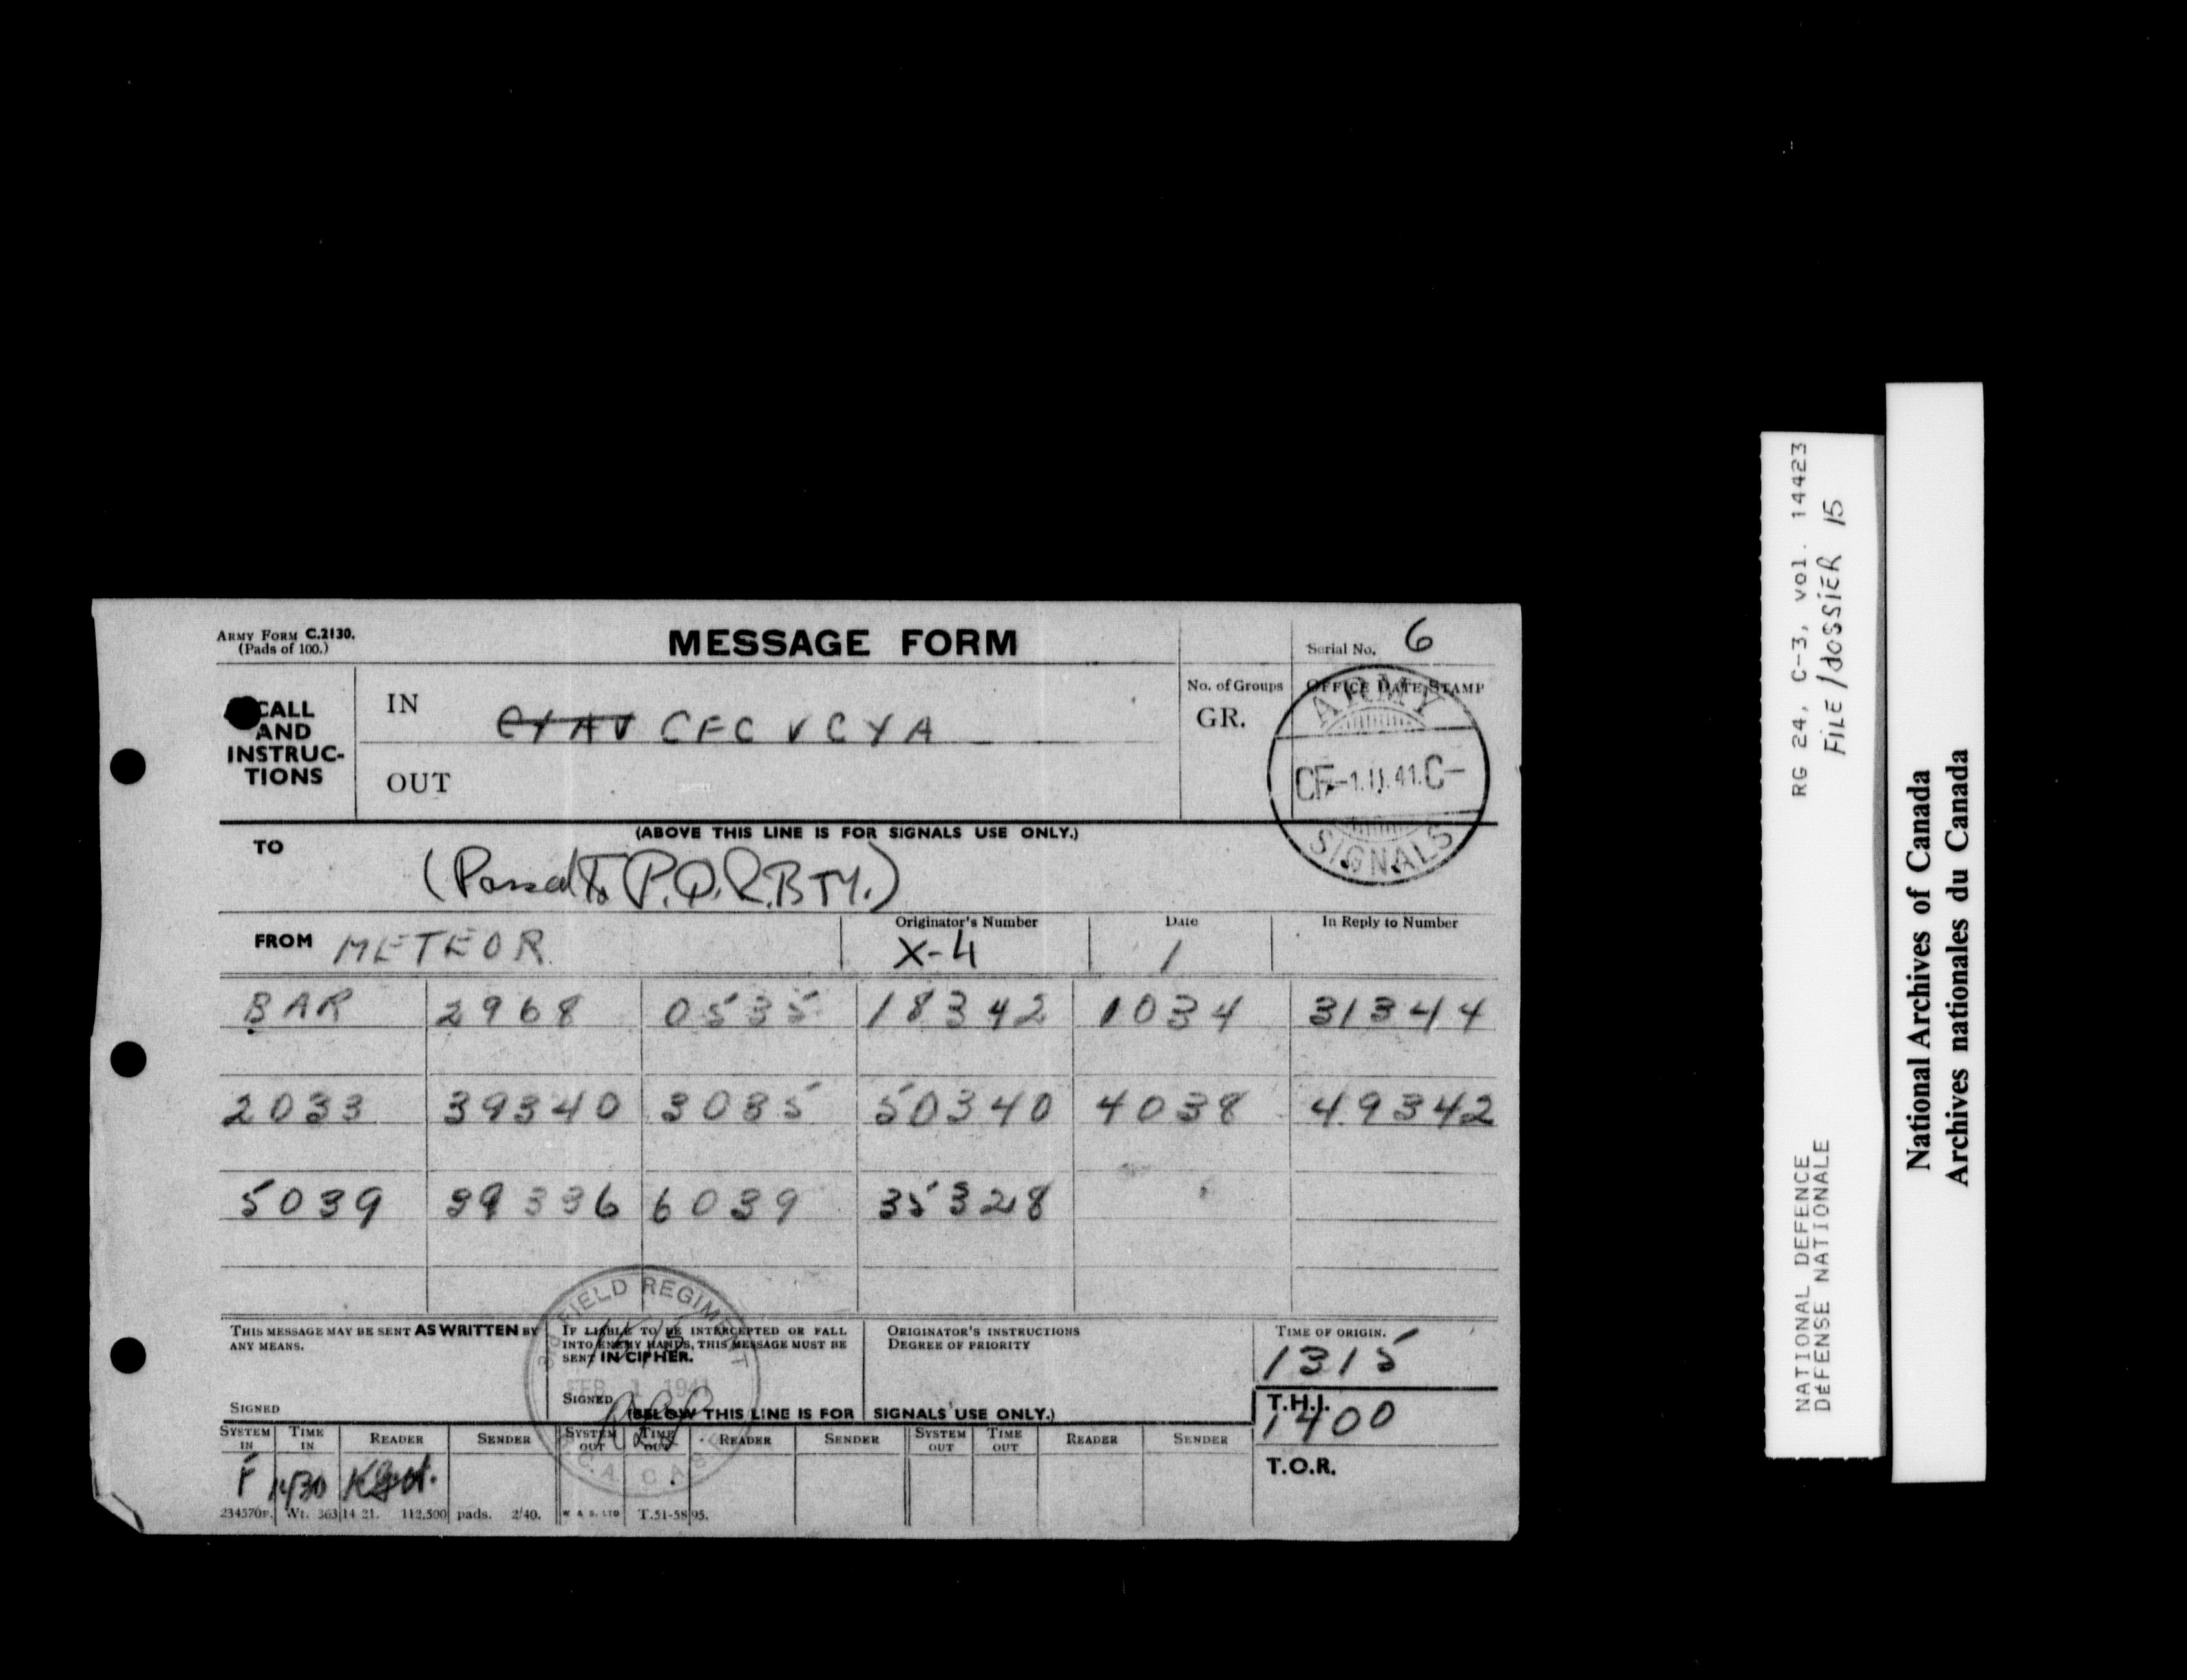 ARMY FORM C.2130.
(Pads of 100.)
MESSAGE FORM
Serial No. 6
CALL
AND
INSTRUC-
TIONS
IN
CYAV CFC V CYA
OUT
No. of Groups
GR.
OFFICE DATE STAMP
ARMY
CF -1.II.41. C-
SIGNALS
(ABOVE THIS LINE IS FOR SIGNALS USE ONLY.)
TO
(Passed to P.Q.R. BTY.)
FROM METEOR
Originator's Number
X-4
Date
1
In Reply to Number
BAR 2968 0535 18342 1034 31344
2033 39340 3035 50340 4038 49342
5039 39336 6039 35328
THIS MESSAGE MAY BE SENT AS WRITTEN BY
ANY MEANS.
SIGNED
IF LIABLE TO BE INTERCEPTED OR FALL
INTO ENEMY HANDS, THIS MESSAGE MUST BE
SENT IN CIPHER.
SIGNED
FIELD REGIMENT
FEB 1 1941
R.C.A. C.A.S.F.
ORIGINATOR'S INSTRUCTIONS
DEGREE OF PRIORITY
TIME OF ORIGIN.
1315
T.H.I.
1400
T.O.R.
(BELOW THIS LINE IS FOR SIGNALS USE ONLY.)
SYSTEM IN TIME IN READER SENDER SYSTEM OUT TIME OUT READER SENDER SYSTEM OUT TIME OUT READER SENDER
F 1430
234570F. Wt. 363 14 21. 112,500 pads. 2/40. W & S. LTD T.51-58 95.
RG 24, C-3, vol. 14423
FILE/DOSSIER 15
NATIONAL DEFENCE
DÉFENSE NATIONALE
National Archives of Canada
Archives nationales du Canada